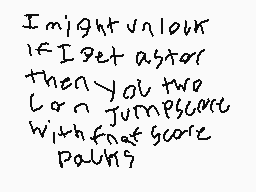 I might unlock
if I get astar
then you two
can jumpscare
with fnaf score
packs